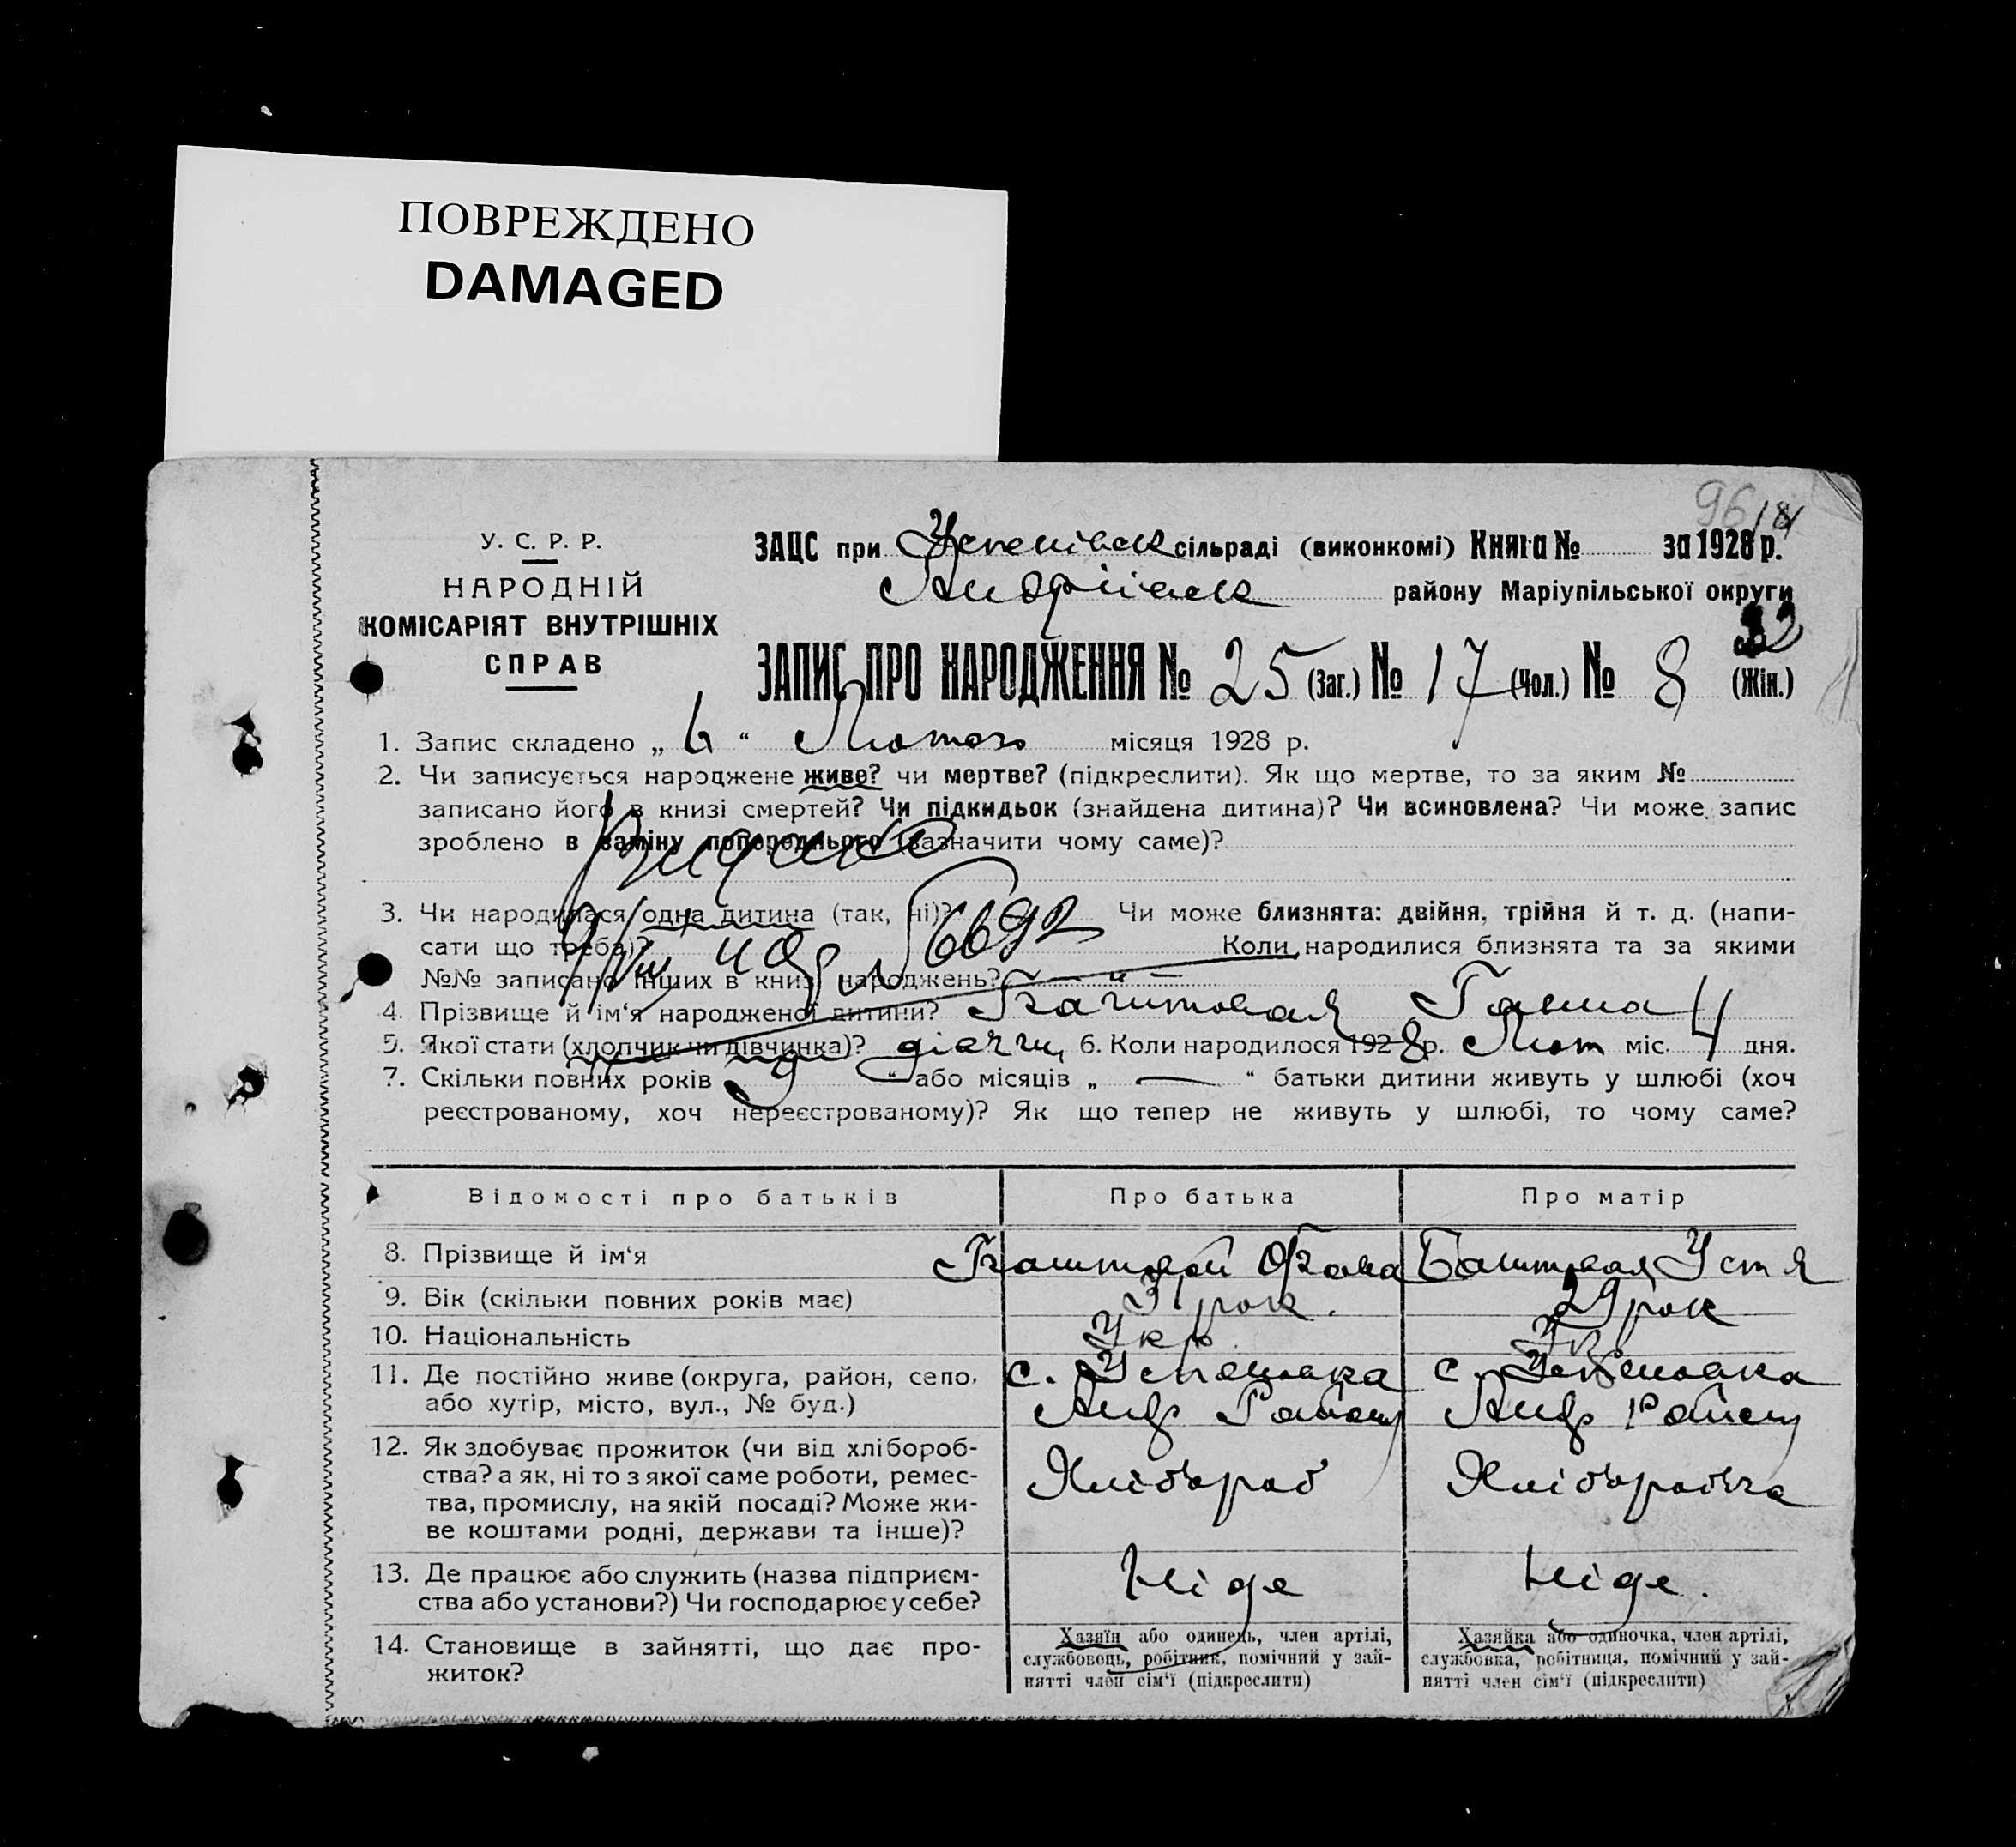 ПОВРЕЖДЕНО
DAMAGED
96
У. С. Р. Р.
НАРОДНІЙ
КОМІСАРІЯТ ВНУТРІШНІХ
СПРАВ
ЗАЦС при Успенівск сільраді (виконкомі) Книга № за 1928 р.
Андріївск району Маріупільської округи
ЗАПИС ПРО НАРОДЖЕННЯ № 25 (Заг.) № 17 (Чол.) № 8 (Жін.)
1. Запис складено „ 6 “ Лютого місяця 1928 р.
2. Чи записується народжене живе? чи мертве? (підкреслити). Як що мертве, то за яким №
записано його в книзі смертей? Чи підкидьок (знайдена дитина)? Чи всиновлена? Чи може запис
зроблено в заміну попороднього (зазначити чому саме)?
Видано
3. Чи народилася одна дитина (так, ні)? Чи може близнята: двійня, трійня й т. д. (напи-
сати що треба)? Коли народилися близнята та за якими
№№ записано інших в книзі народжень?
4. Прізвище й ім‘я народженої дитини? Баштовая Ганна
5. Якої стати (хлопчик чи дівчинка)? дівчин 6. Коли народилося 1928 р. Лют міс. 4 дня.
7. Скільки повних років „ 9 “ або місяців „ — “ батьки дитини живуть у шлюбі (хоч
реєстрованому, хоч нереєстрованому)? Як що тепер не живуть у шлюбі, то чому саме?
Відомості про батьків Про батька Про матір
8. Прізвище й ім‘я Баштовой Баштовая Устя
9. Вік (скільки повних років має) 31 рок. 29 рок
10. Національність Укр Ук
11. Де постійно живе (округа, район, село, с. Успеновка с. Успеновка
або хутір, місто, вул., № буд.) Андр Району Андр Району
12. Як здобуває прожиток (чи від хлібороб-
ства? а як, ні то з якої саме роботи, ремес- Хлібороб Хліборобка
тва, промислу, на якій посаді? Може жи-
ве коштами родні, держави та інше)?
13. Де працює або служить (назва підприєм- Ніде Ніде.
ства або установи?) Чи господарює у себе?
14. Становище в зайнятті, що дає про-
житок?
Хазяїн або одинець, член артілі,
службовець, робітник, помічний у зай-
нятті член сім‘ї (підкреслити)
Хазяйка або одиночка, член артілі,
службовка, робітниця, помічний у зай-
нятті член сім‘ї (підкреслити)